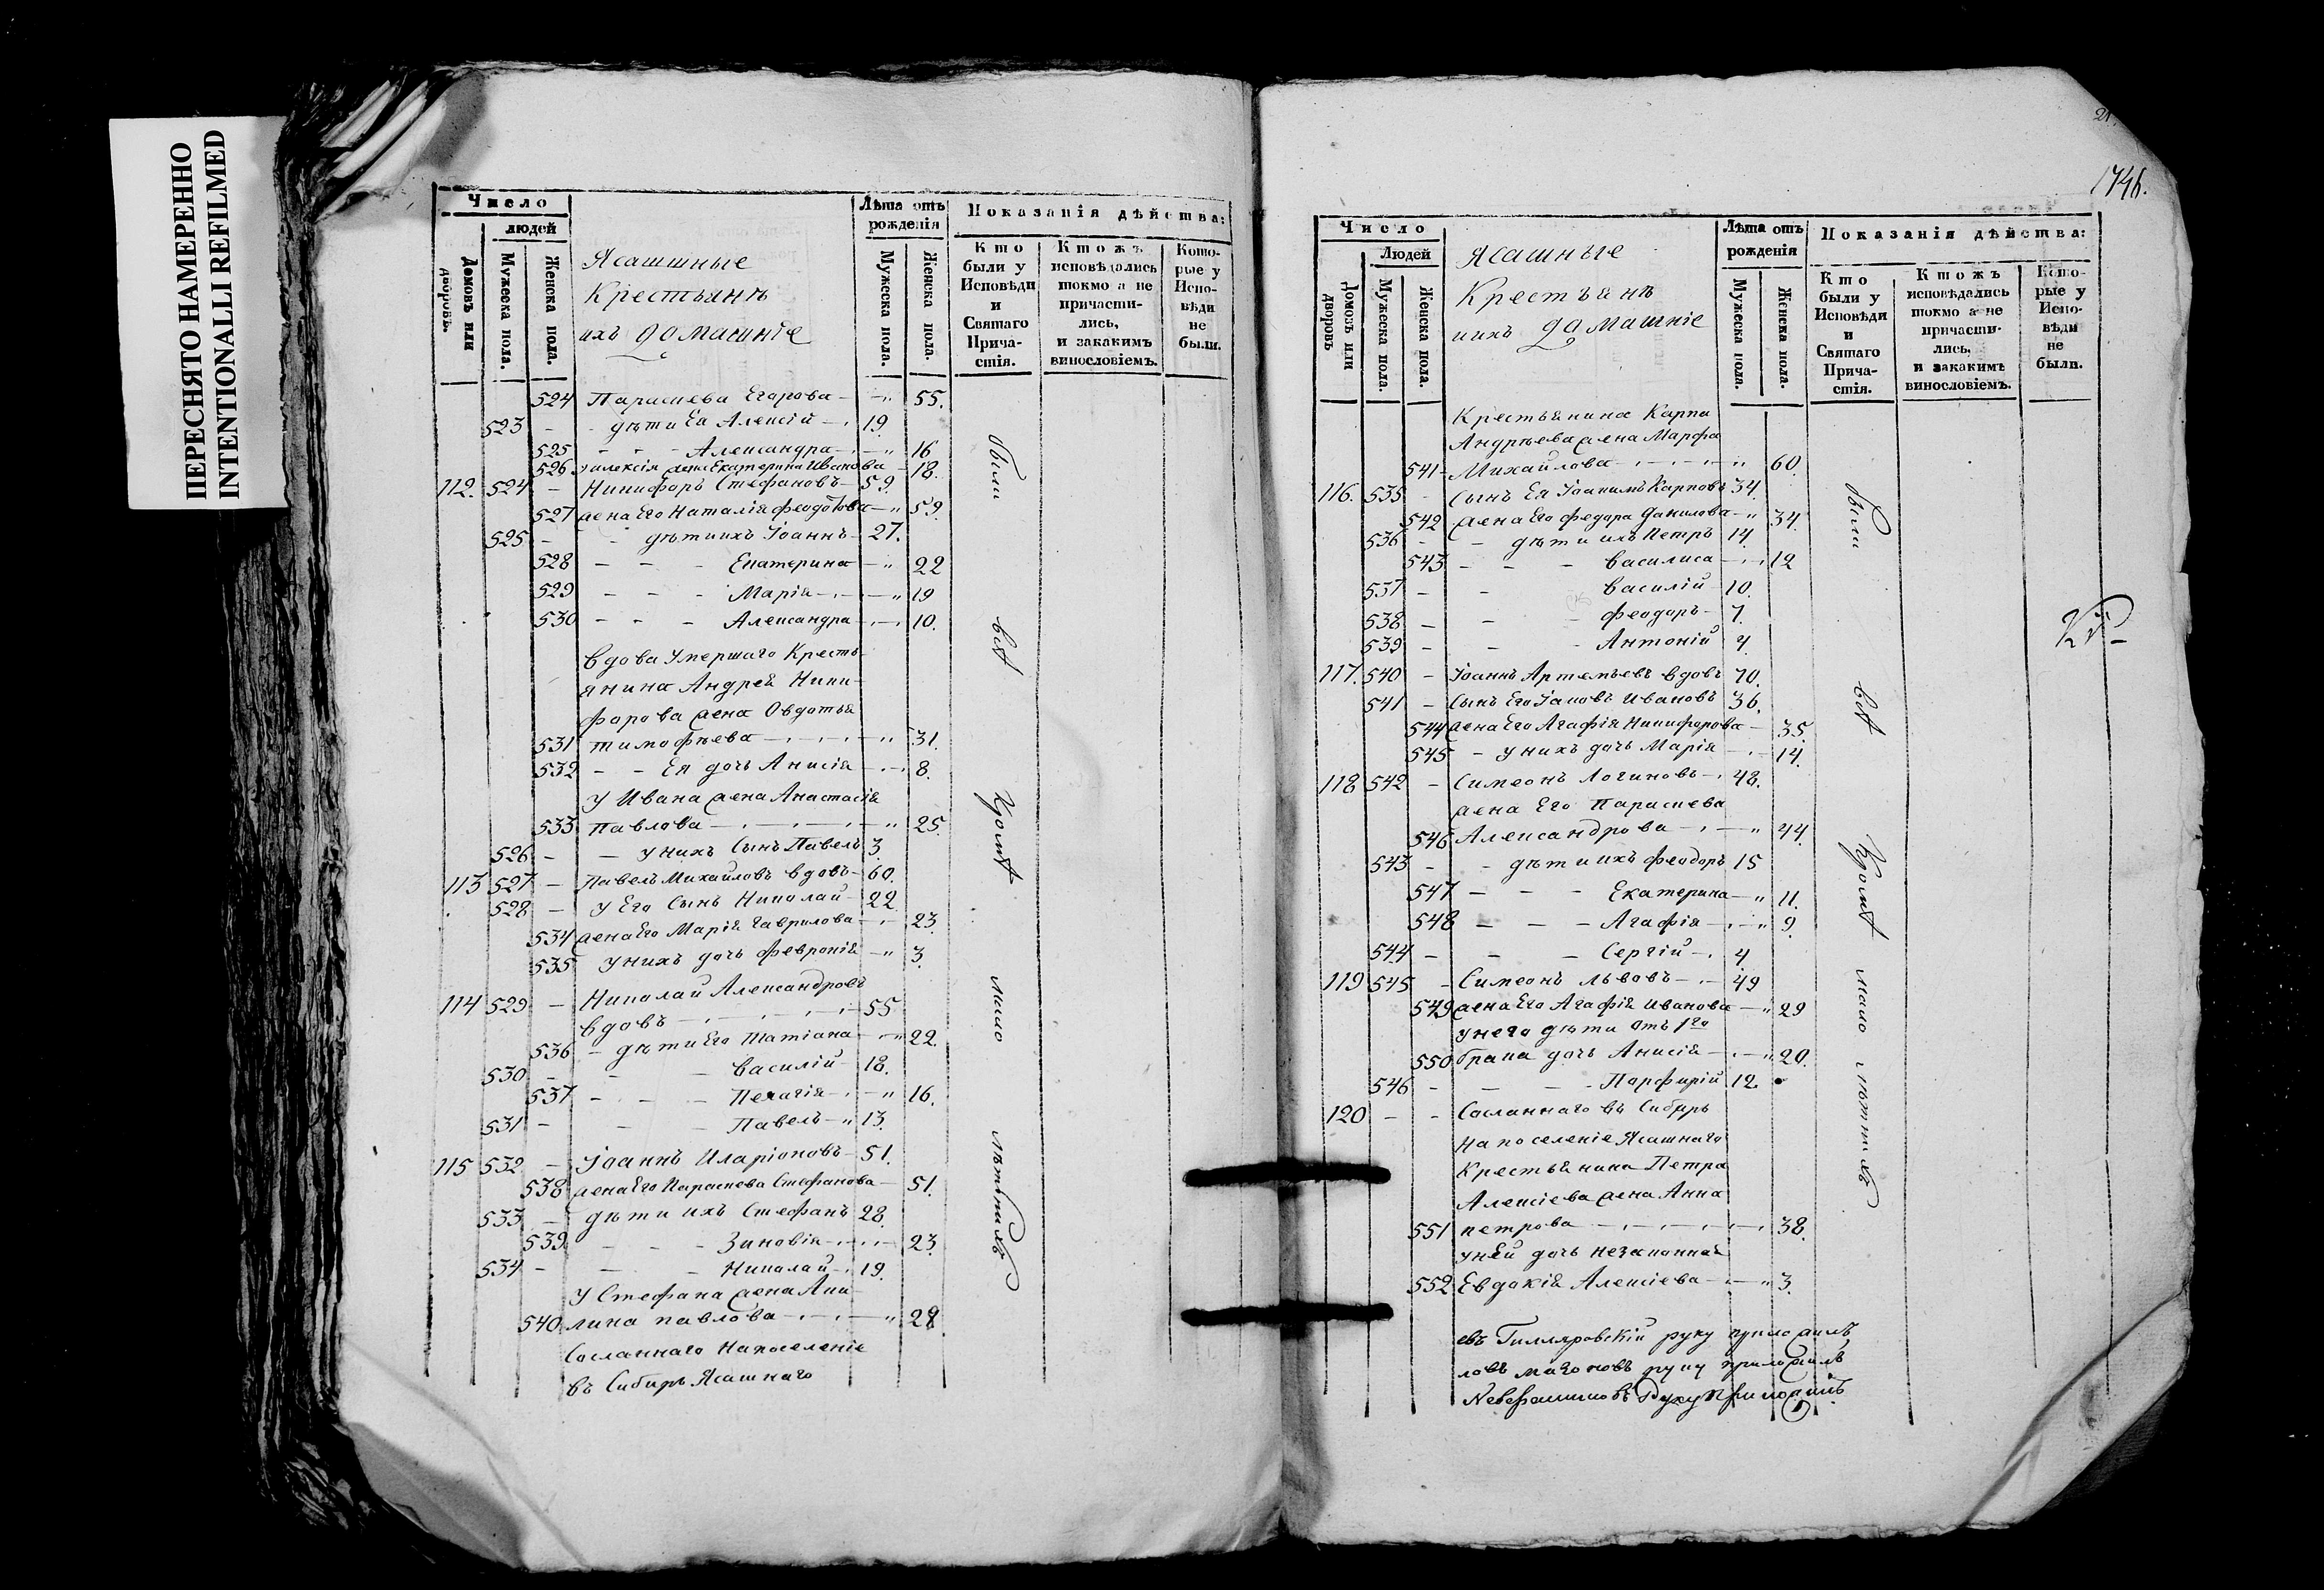 ПЕРЕСНЯТО НАМЕРЕННО
INTENTIONALLI REFILMED
Число
людей
Домовъ или дворовъ.
Мужеска пола.
Женска пола.
Ясашныe
Крестьянъ
ихъ домашніе
Лѣта отъ рожденія
Мужеска пола.
Женска пола.
Показанія дѣйства:
Кто были у Исповѣди и Святаго Причастія.
Ктожъ исповѣдались токмо а не причастились, и закакимъ винословіемъ.
Которые у Исповѣди не были.
524 Параскева Егорова - " 55.
523 - - дѣти Ея Алексій - 19.
525 - - Александра - " 16
526 у алексія жена Екатерина Иванова - 18.
112. 524 - Никифоръ Стефановъ - 59.
527 жена Его Наталія Феодотова - " 59.
525 - - дѣти ихъ Іоаннъ - 27.
528 - - - Екатерина - " 22
529 - - - Марія - " 19
530 - - - Александра - 10.
вдова Умершаго Кресть-
янина Андрея Ники-
форова жена Овдотья
531 тимофѣева - " 31.
532 - - Ея дочь Анисія - 8.
У Ивана жена Анастасія
533 павлова - " 25.
526 - - у нихъ Сынъ Павелъ 3.
113 527 - Павелъ Михайловъ вдовъ - 60.
528 - у Его Сынъ Николай - 22
534 жена Его Марія Гаврилова - 23.
535 у нихъ дочь Февронія - " 3.
114 529 - Николай Александровъ
вдовъ - 55
536 - дѣти Его Татіана - " 22.
530 - - - Василій - 18.
537 - - - Пелагія - " 16.
531 - - - Павелъ - " 13.
115 532 - Іоаннъ Иларіоновъ - 51.
538 жена Его Параскева Стефанова - 51.
533 - дѣти ихъ Стефанъ 28.
539 - - - Зиновія - 23.
534 - - - Николай - 19.
У Стефана жена Аки-
540 лина павлова - " 29.
Сосланнаго На поселеніе
въ Сибирь Ясашнаго
были всѣ Кромѣ мало лѣтныхъ
21.
1746.
Число
Людей
Домовъ или дворовъ
Мужеска пола.
Женска пола.
Ясашные
Крестьянъ
иихъ домашніе
Лѣта отъ рожденія
Мужеска пола.
Женска пола.
Показанія дѣйства:
Кто были у Исповѣди и Святаго Причастія.
Ктожъ исповѣдались токмо а не причастились, и закакимъ винословіемъ.
Которые у Исповѣди не были.
Крестьянина Карпа
Андрѣева жена Марфа
541 - Михайлова - " 60.
116. 535 - Сынъ Ея Іоакимъ Карповъ 34.
542 жена Его Федора Данилова - " 34.
536 - - дѣти ихъ Петръ 14.
543 - - - Василиса - 12
537 - - Василій - 10.
538 - - Феодоръ - 7.
539 - - Антоній 4.
117. 540 - Іоаннъ Артемьевъ вдовъ 70.
541 - Сынъ Его Іаковъ Ивановъ 36.
544 жена Его Агафія Никифорова - 35.
545 - у нихъ дочь Марія - 14.
118 542 - Симеонъ Логиновъ - 48.
жена Его Параскева
546 Александрова - " 44.
543 - - дѣти ихъ Феодоръ 15
547 - - - Екатерина - " 11.
548 - - - Агафія - " 9.
544 - - - Сергій - 4
119 545 - Симеонъ Львовъ - 49
549 жена Его Агафія Иванова - " 29
у него дѣти отъ 1го
550 брака дочь Анисія - " 20.
546 - - - Парфирій 12.
120 - - Сосланнаго въ Сибирь
На поселеніе Ясашнаго
Крестьянина Петра
Алексіева жена Анна
551 петрова - 38.
у нЕй дочь незаконная
552 Евдокія Алексіева - " 3.
были всѣ Кромѣ мало лѣтныхъ
евъ Гилляровскій руку приложилъ
ловъ руку приложилъ
Руку приложилъ